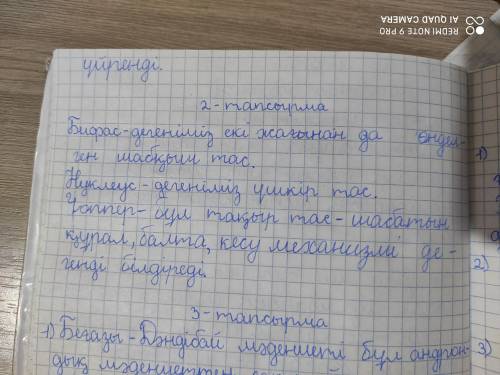 REDMI NOTE 9 PRO
AI QUAD CAMERA
үйренді.
2-тапсырма
Бифас-дегеніміз екі жағынан да өңдел-
ген шабқыш тас.
Нуклеус-дегеніміз үшкір тас.
Чоппер-бұл тақыр тас-шабатын
құрал, балта, кесу механизмі де-
генді білдіреді.
3-тапсырма
1) Беғазы-Дәндібай мәдениеті бұл андрон-
дық мәдениеттен
1)
2)
3)